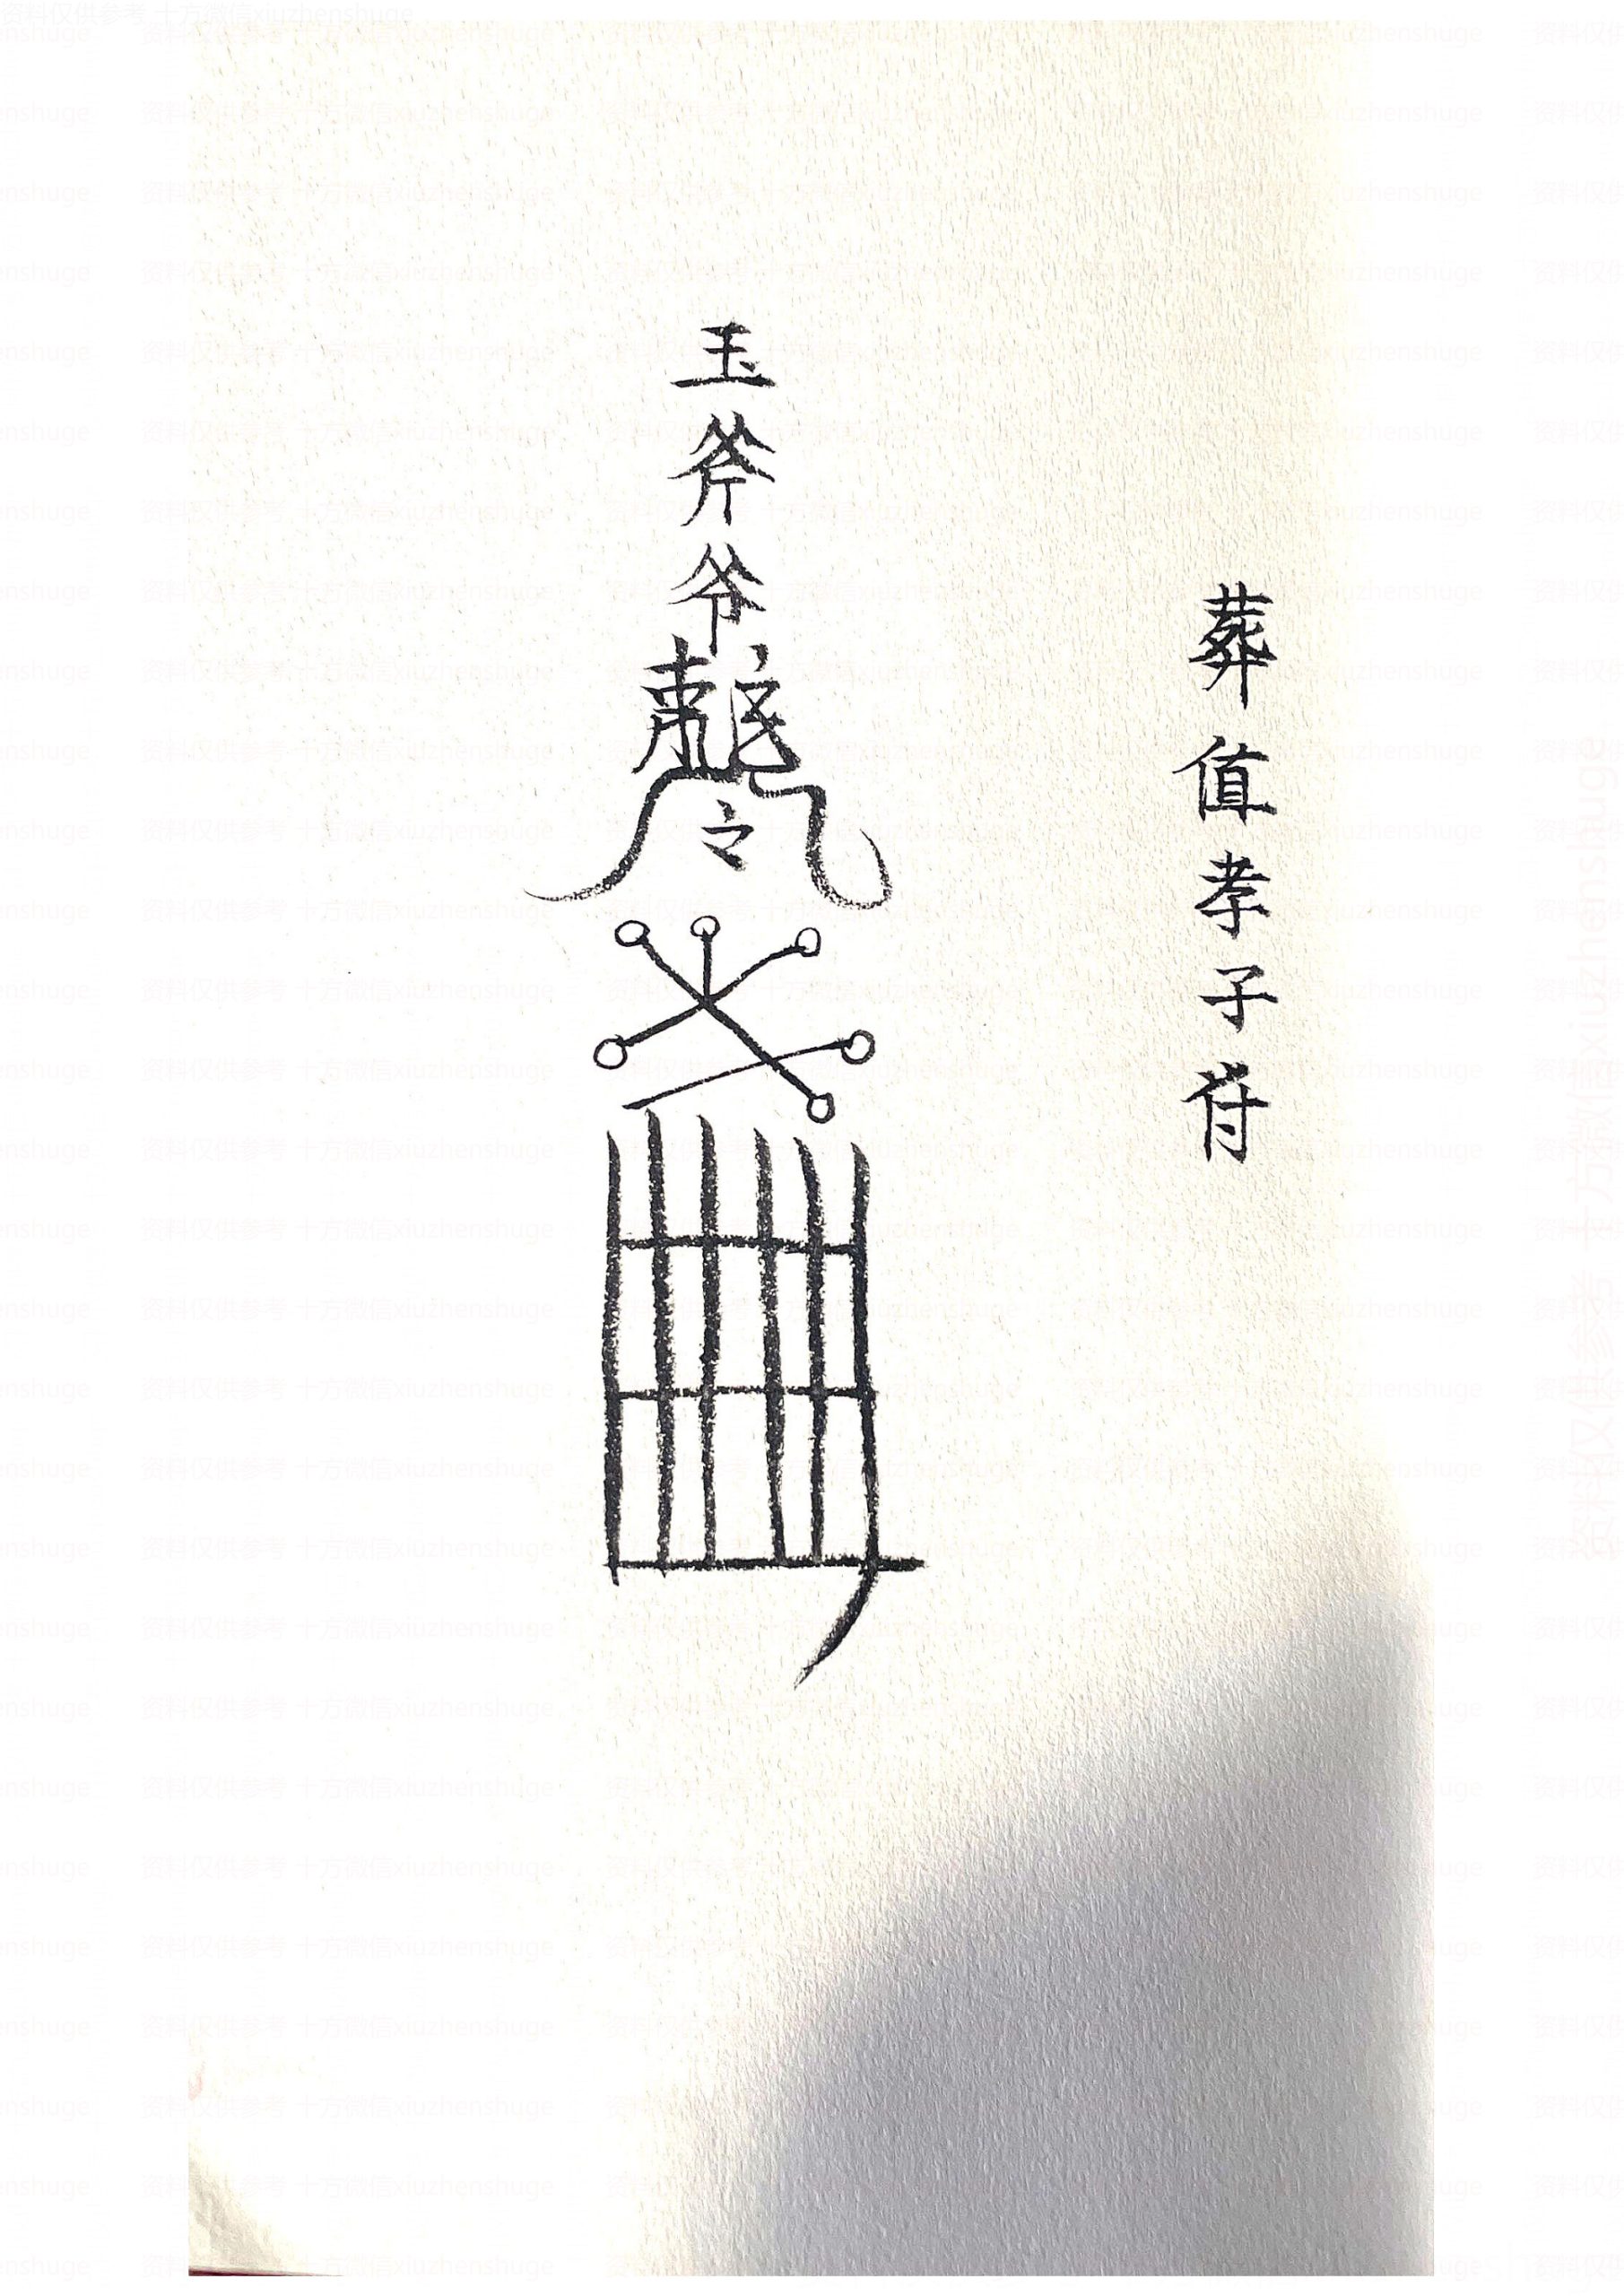 葬值孝子符
玉斧爷敕令
资料仅供参考 十方微信xiuzhenshuge